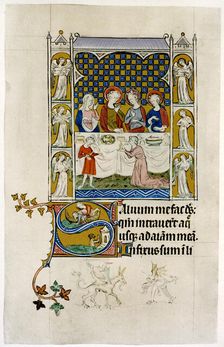 Salvum me fac ds:
qm intraverūt aq̄
usq; ad aīam meā.
Infixus sum ī li